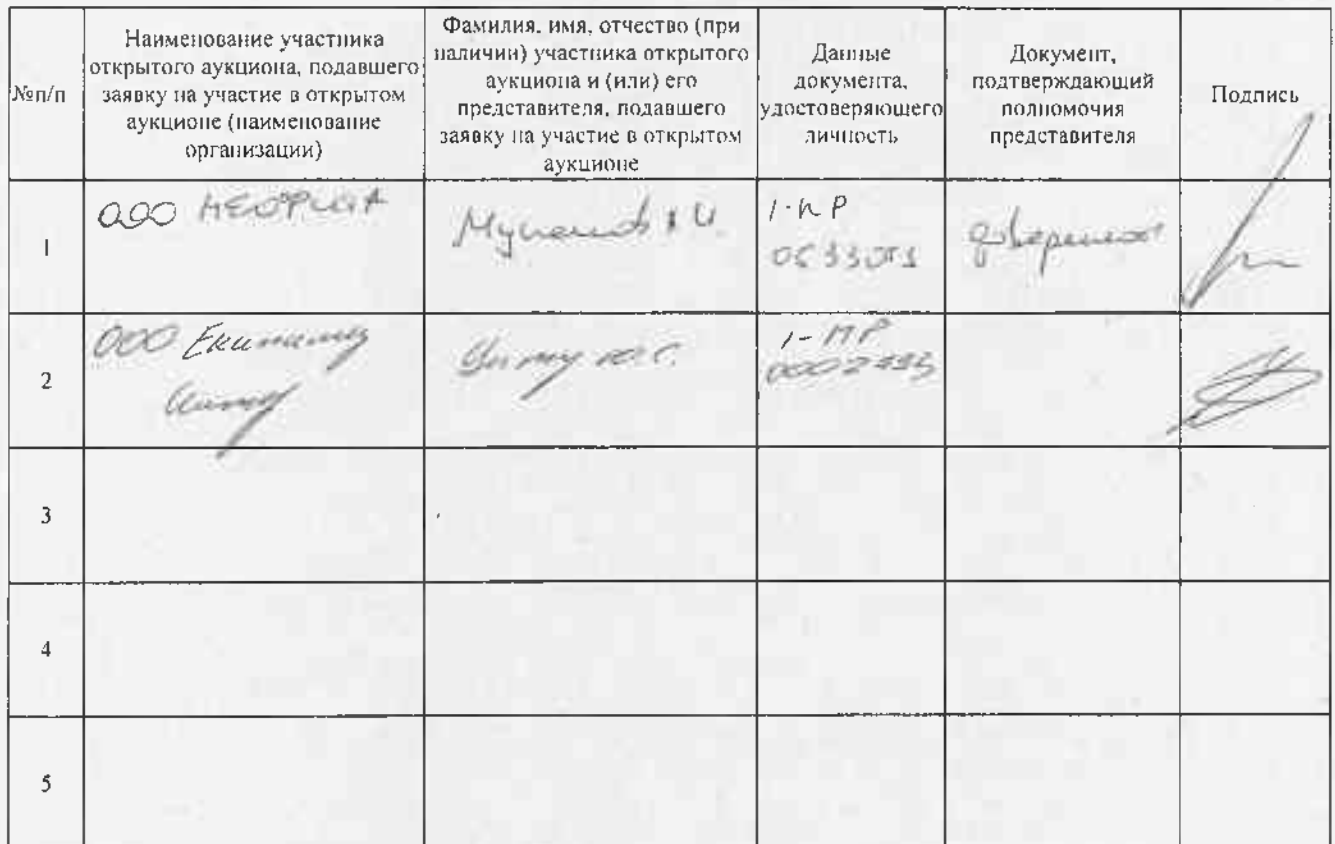 №п/п
Наименование участника
открытого аукциона, подавшего
заявку на участие в открытом
аукционе (наименование
организации)
Фамилия, имя, отчество (при
наличии) участника открытого
аукциона и (или) его
представителя, подавшего
заявку на участие в открытом
аукционе
Данные
документа,
удостоверяющего
личность
Документ,
подтверждающий
полномочия
представителя
Подпись
1
ООО
2
ООО
I-ПР
3
4
5